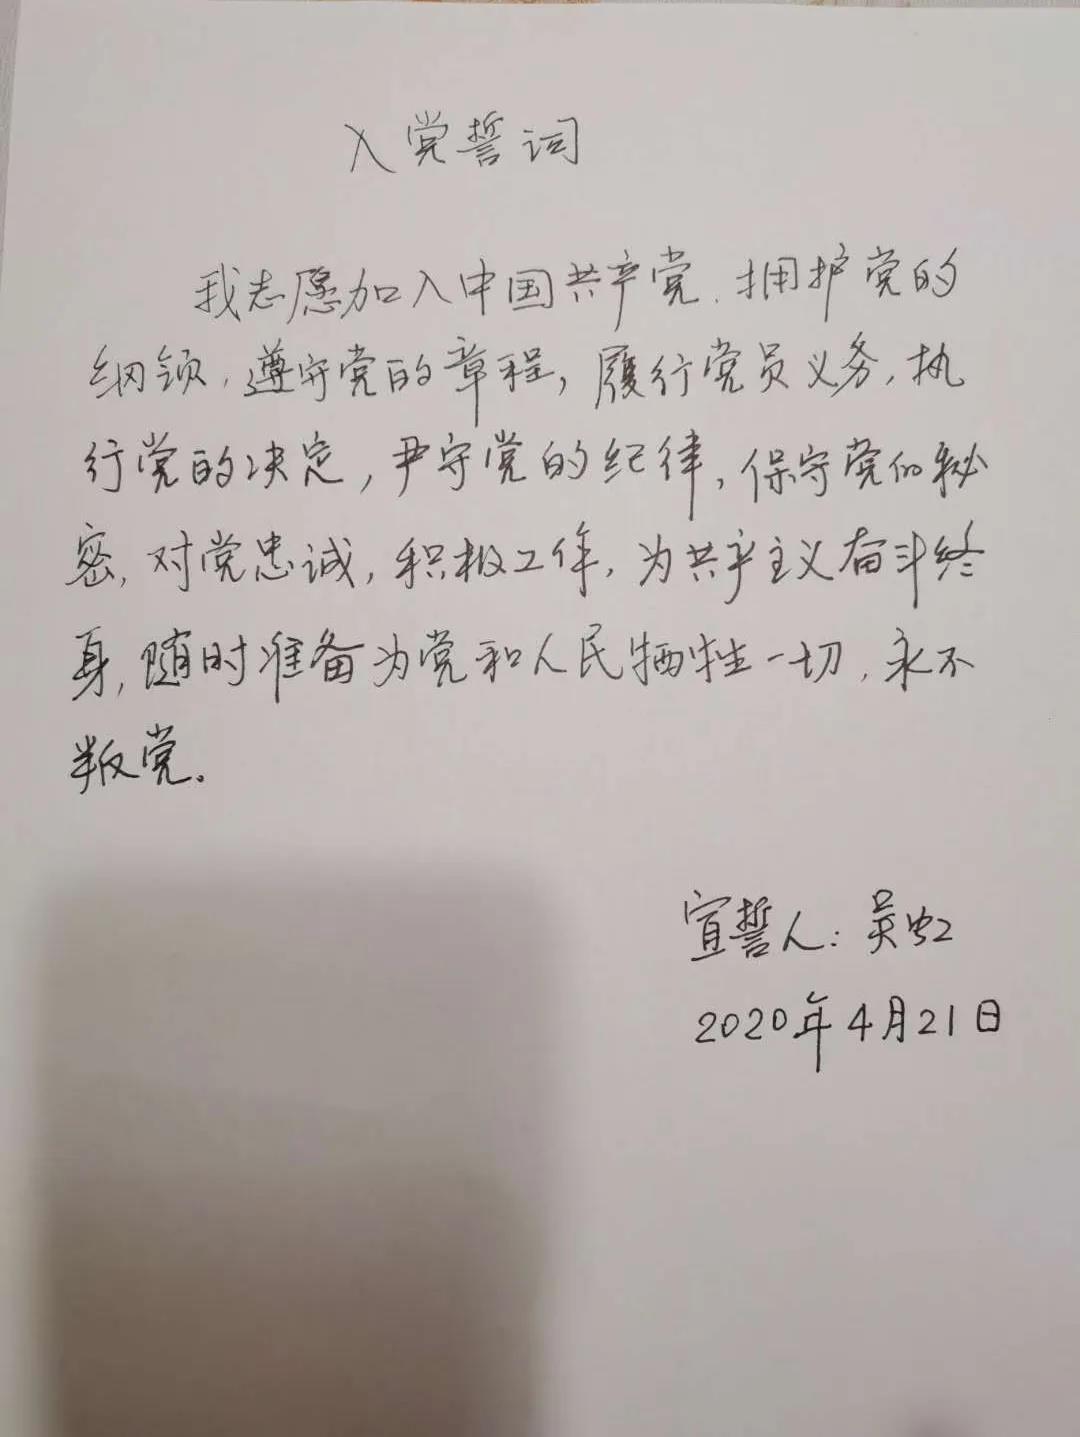 入党誓词
我志愿加入中国共产党，拥护党的
纲领，遵守党的章程，履行党员义务，执
行党的决定，严守党的纪律，保守党的秘
密，对党忠诚，积极工作，为共产主义奋斗终
身，随时准备为党和人民牺牲一切，永不
叛党。
宣誓人：吴虹
2020年4月21日